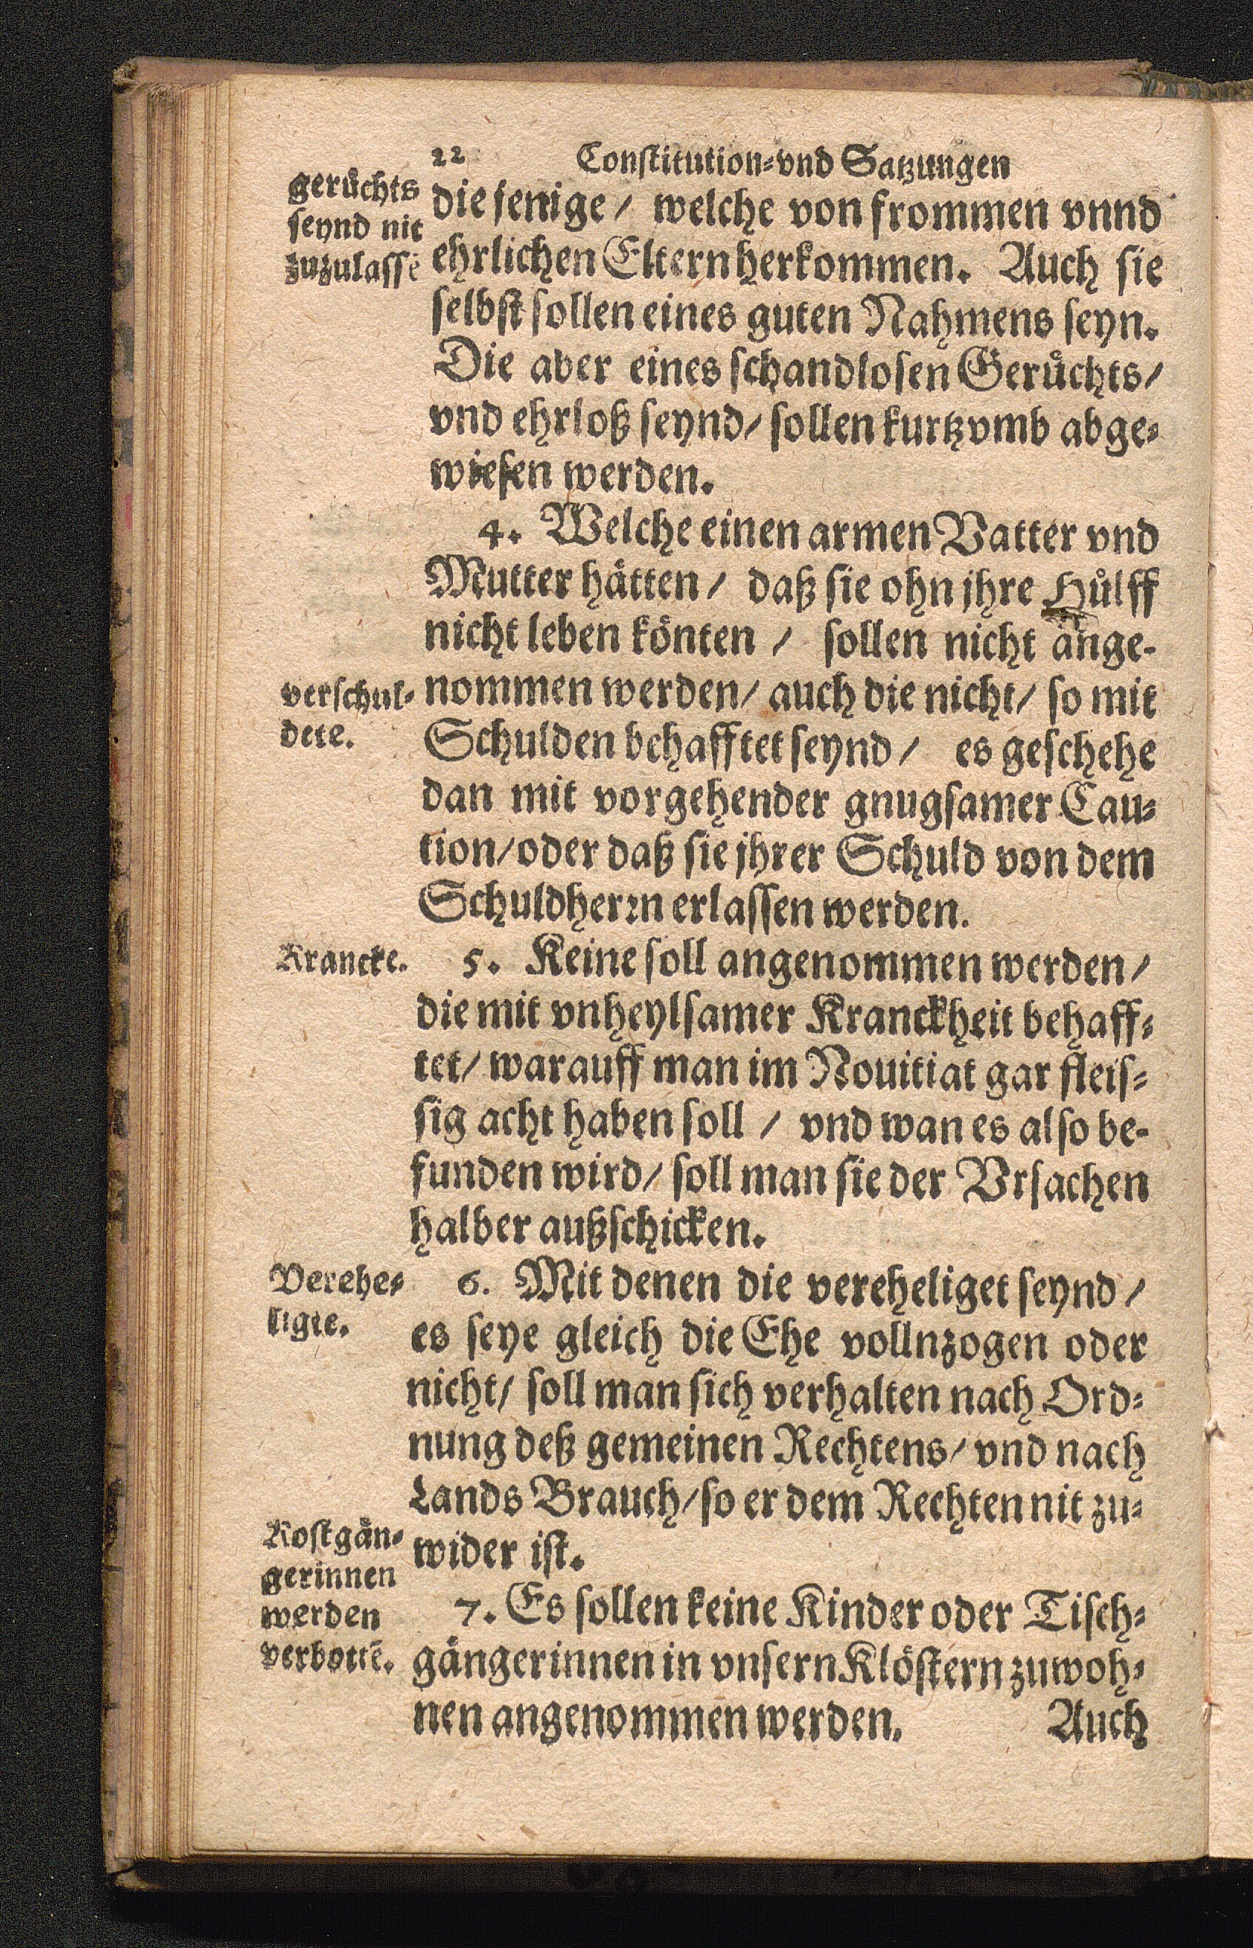 22 Constitution-vnd Satzungen
gerůchts
seynd nit
zuzulassē
die jenige / welche von frommen vnnd
ehrlichen Eltern herkommen. Auch sie
selbst sollen eines guten Nahmens seyn.
Die aber eines schandlosen Gerůchts/
vnd ehrloß seynd/ sollen kurtzvmb abge-
wiesen werden.
4. Welche einen armen Vatter vnd
Mutter hätten / daß sie ohn jhre Hůlff
nicht leben könten / sollen nicht ange-
verschul-
dete.
nommen werden/ auch die nicht/ so mit
Schulden behafftet seynd / es geschehe
dan mit vorgehender gnugsamer Cau-
tion/oder daß sie jhrer Schuld von dem
Schuldherꝛn erlassen werden.
Krancke.
5. Keine soll angenommen werden/
die mit vnheylsamer Kranckheit behaff-
tet/ warauff man im Nouitiat gar fleis-
sig acht haben soll / vnd wan es also be-
funden wird/ soll man sie der Vrsachen
halber außschicken.
Verehe-
ligte.
6. Mit denen die vereheliget seynd/
es seye gleich die Ehe vollnzogen oder
nicht/ soll man sich verhalten nach Ord-
nung deß gemeinen Rechtens/ vnd nach
Lands Brauch/so er dem Rechten nit zu-
wider ist.
Kostgän-
gerinnen
werden
verbottē.
7. Es sollen keine Kinder oder Tisch-
gängerinnen in vnsern Klöstern zuwoh-
nen angenommen werden. Auch